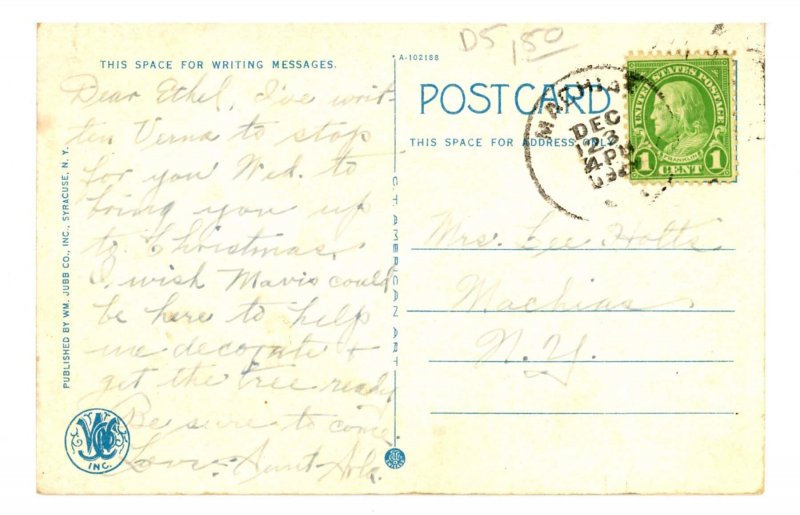 D5,50
THIS SPACE FOR WRITING MESSAGES.
A-102188
POST CARD
THIS SPACE FOR ADDRESS ONLY
UNITED STATES POSTAGE
FRANKLIN
1 CENT 1
DEC
23
4 PM
Dear Ethel, I've writ-
ten Verna to stop
for you Wed. to
bring you up
to Christmas.
I wish Mavis could
be here to help
me decorate +
get the tree ready
Be sure to come
Love - Aunt
Mrs. Lee Holts
Machias
N.Y.
PUBLISHED BY WM. JUBB CO., INC., SYRACUSE, N. Y.
C. T. AMERICAN ART
INC.